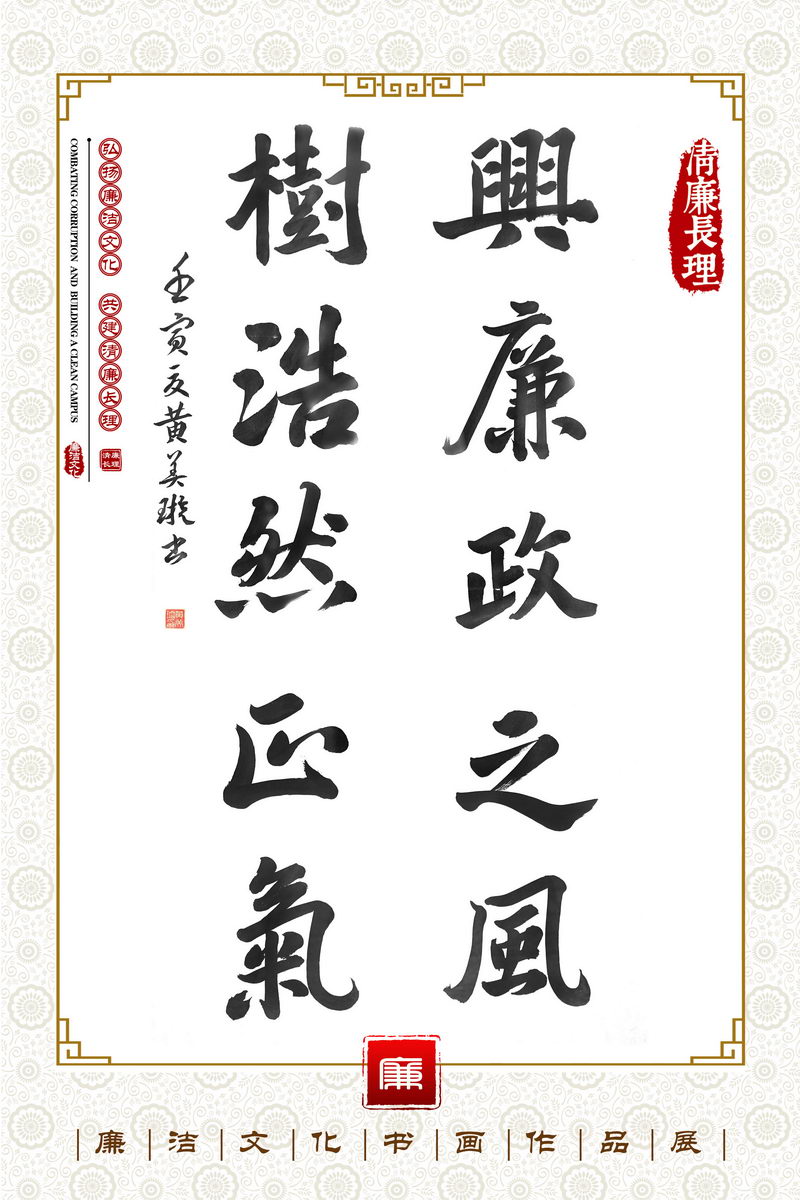 清廉長理
興廉政之風
樹浩然正氣
壬寅夏黄美璇书
弘扬廉洁文化 共建清廉长理
廉理清长
COMBATING CORRUPTION AND BUILDING A CLEAN CAMPUS
廉洁文化
廉
廉洁文化书画作品展